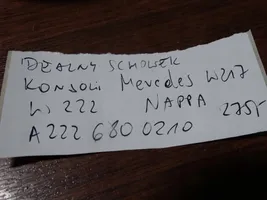 DEALNY SCHOWEK
KONSOLI Mevcedes W217
W 222 NAPPA 275,-
A 222 680 0210